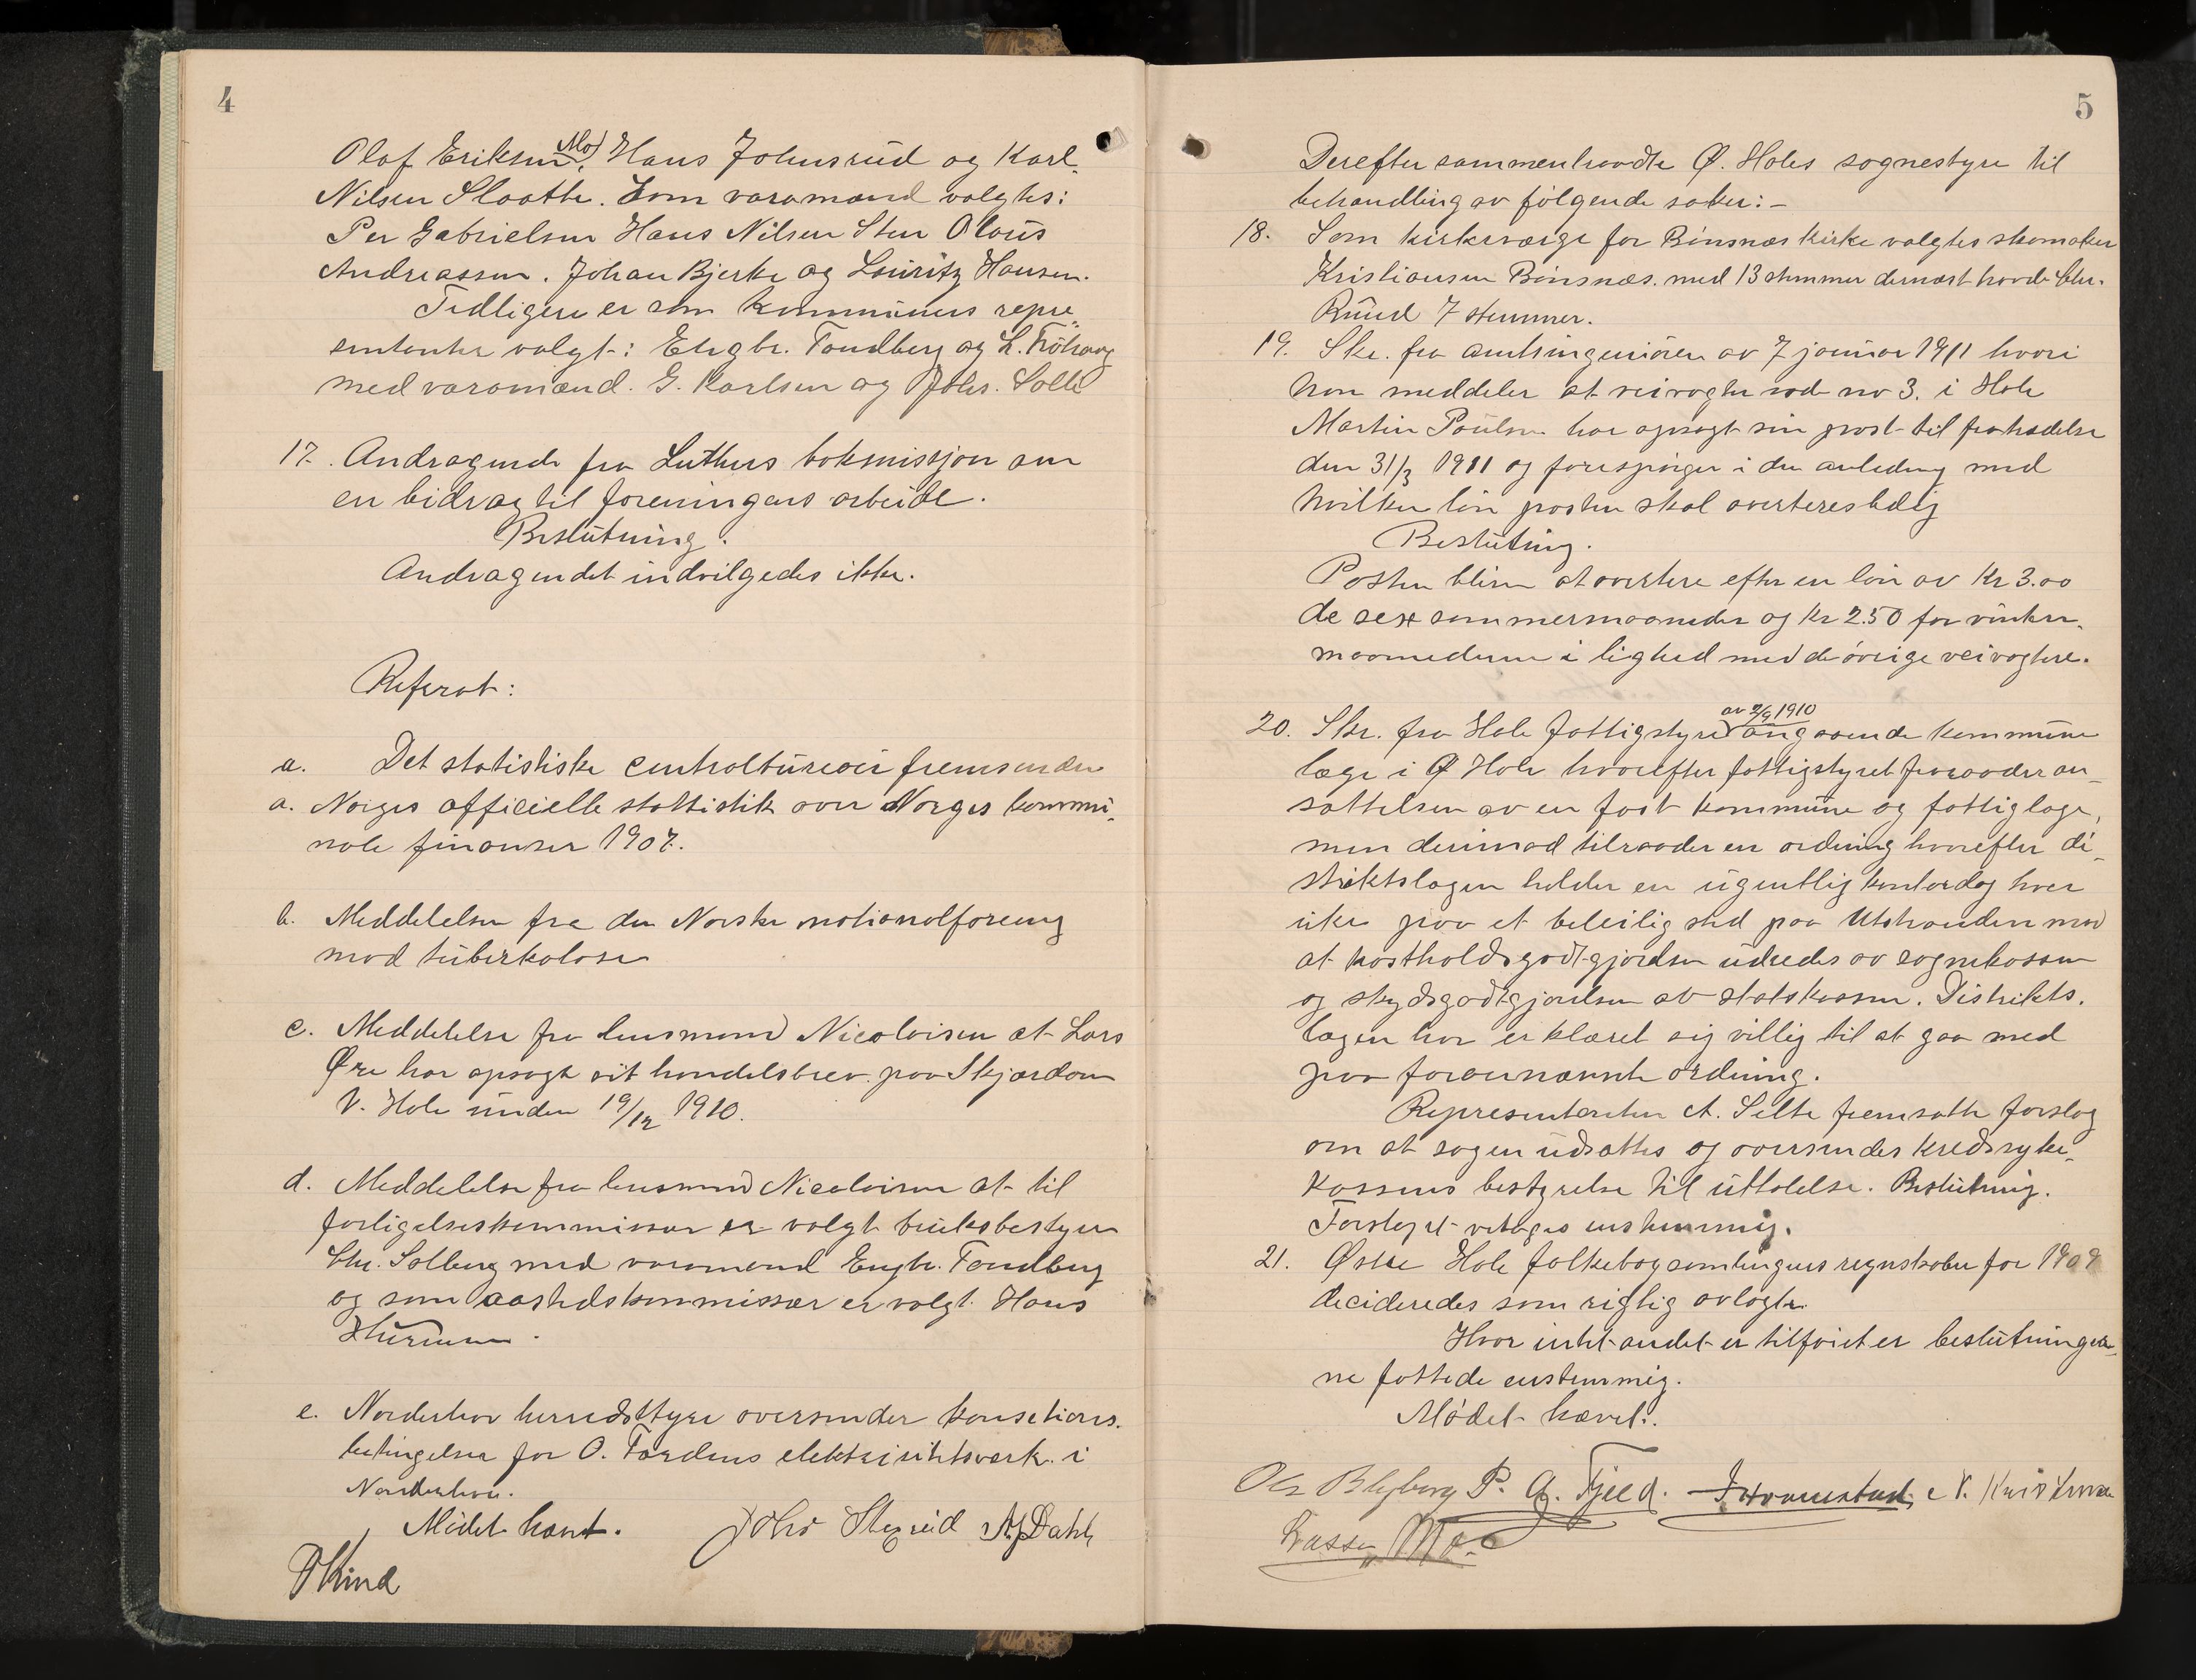 4
Olaf Eriksen Mo, Hans Johnsrud og Karl
Nilsen Slaatte. Som varamænd valgtes:
Per Gabrielsen Hans Nilsen Sten Olaus
Andreassen. Johan Bjerke og Lauritz Hansen.
Tidligere er som kommunens repre„
sentanter valgt: Engbr. Fondberg og L. Fröhaug
med varamænd. G. Karlsen og Johs. Solli
17. Andragende fra Luthers bokmissjon om
en bidrag til foreningens arbeide.
Beslutning.
Andragendet indvilgedes ikke.
Referat:
a. Det statistiske centralbureau fremsender
a. Norges officielle stattistik over Norges kommu„
nale finanser 1907.
b. Meddelelse fra den Norske nationalforening
mod tuberkolose
c. Meddelelse fra lensmand Nicolaisen at Lars
Øre har opsagt sit handelsbrev paa Skjærdam
V. Hole under 19/12 1910.
d. Meddelelse fra lensmand Nicolaisen at til
forligelseskommissær er valgt bruksbestyrer
Chr. Solberg med varamand Engbr. Fondberg
og som aastedskommissær er valgt Hans
Hurum.
e. Norderhov herredsstyre oversender konsetions
betingelser for O. Færdens elektrisitetsværk i
Norderhov.
Mödet hævet. Johs Stixrud A Dahl
Kind
5
Derefter sammentraadte Ø. Holes sognestyre til
behandling av følgende saker:–
18. Som kirkeværge for Bönsnæs kirke valgtes skomaker
Kristiansen Bönsnæs. med 13 stemmer dernæst havde Chr.
Ruud 7 stemmer.
19. Skr. fra amtsingeniören av 7 januar 1911 hvori
han meddeler at veivogter rode no 3. i Hole
Martin Paulsen har opsagt sin post til fratrædelse
den 31/3 1911 og forespörger i den anledning med
hvilken lön posten skal avverteres ledig
Beslutning.
Posten bliver at avertere efter en lön av Kr 3.00
de sex sommermaaneder og Kr 2.50 for vinter„
maanederne i lighed med de övrige veivogtere.
20. Skr. fra Hole fattigstyre av 2/9 1910 angaaende kommune
læge i Ø Hole hvorefter fattigstyret fraraader an„
sættelsen av en fast kommune og fattiglæge,
men derimod tilraader en ordning hvorefter di„
striktslægen holder en ugentlig kontordag hver
uke paa et beleilig sted paa Utstranden mod
at kostholdsgodtgjørelsen udredes av sognekassen
og skydsgodtgjørelsen av statskassen. Distrikts„
lægen har erklæret sig villig til at gaa med
paa foranævnte ordning.
Representanten A. Selte fremsatte forslag
om at sagen udsættes og oversendes kredssyke„
kassens bestyrelse til uttalelse. Beslutning.
Forslaget vedtages enstemmig.
21. Østre Hole folkebogsamlingens regnskaber for 1909
decideredes som rigtig avlagte.
Hvor intet andet er tilföiet er beslutninger„
ne fattede enstemmig.
Mödet hævet.
Ole Blyberg P. G. Fjeld. N. Kristensen
Lasse Moe